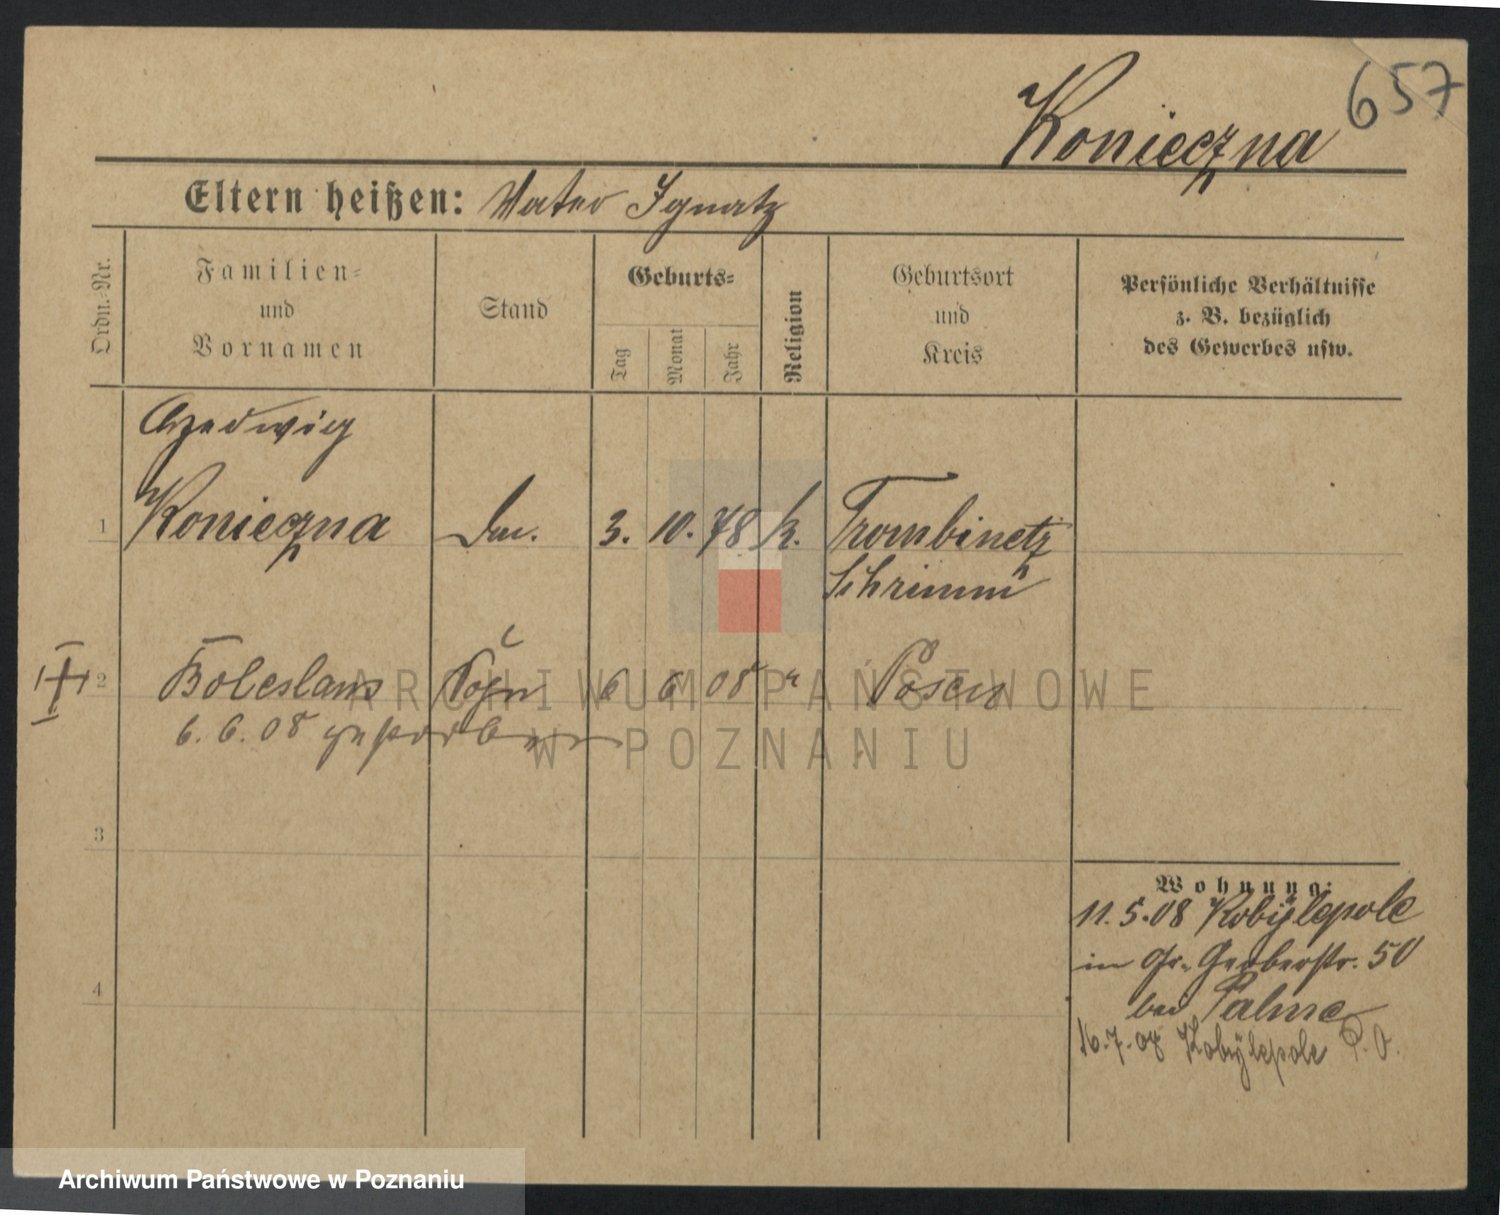 657
Konieczna
Eltern heißen: Vater Ignatz
Ordn.-Nr.
Familien-
und
Vornamen
Stand
Geburts-
Tag
Monat
Jahr
Religion
Geburtsort
und
Kreis
Persönliche Verhältnisse
z. B. bezüglich
des Gewerbes usw.
Hedwig
1 Konieczna 3. 10. 78 k. Trombinetz
Schrimm
2 Boleslaus Sohn 6 6 08 " Posen
6. 6. 08 gestorben
3
4
Wohnung:
11. 5. 08 Kobylepole
in Gr. Gerberstr. 50
bei Palme
16. 7. 08 Kobylepole P. O.
ARCHIWUM PAŃSTWOWE
W POZNANIU
Archiwum Państwowe w Poznaniu